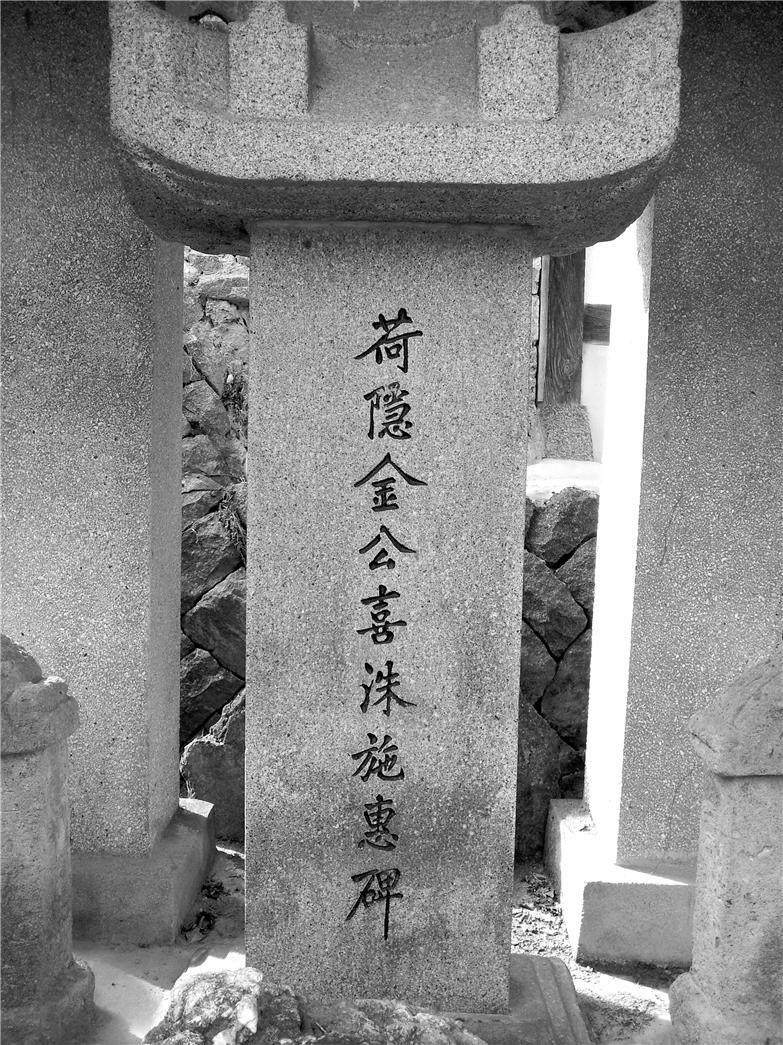 荷隱金公喜洙施惠碑